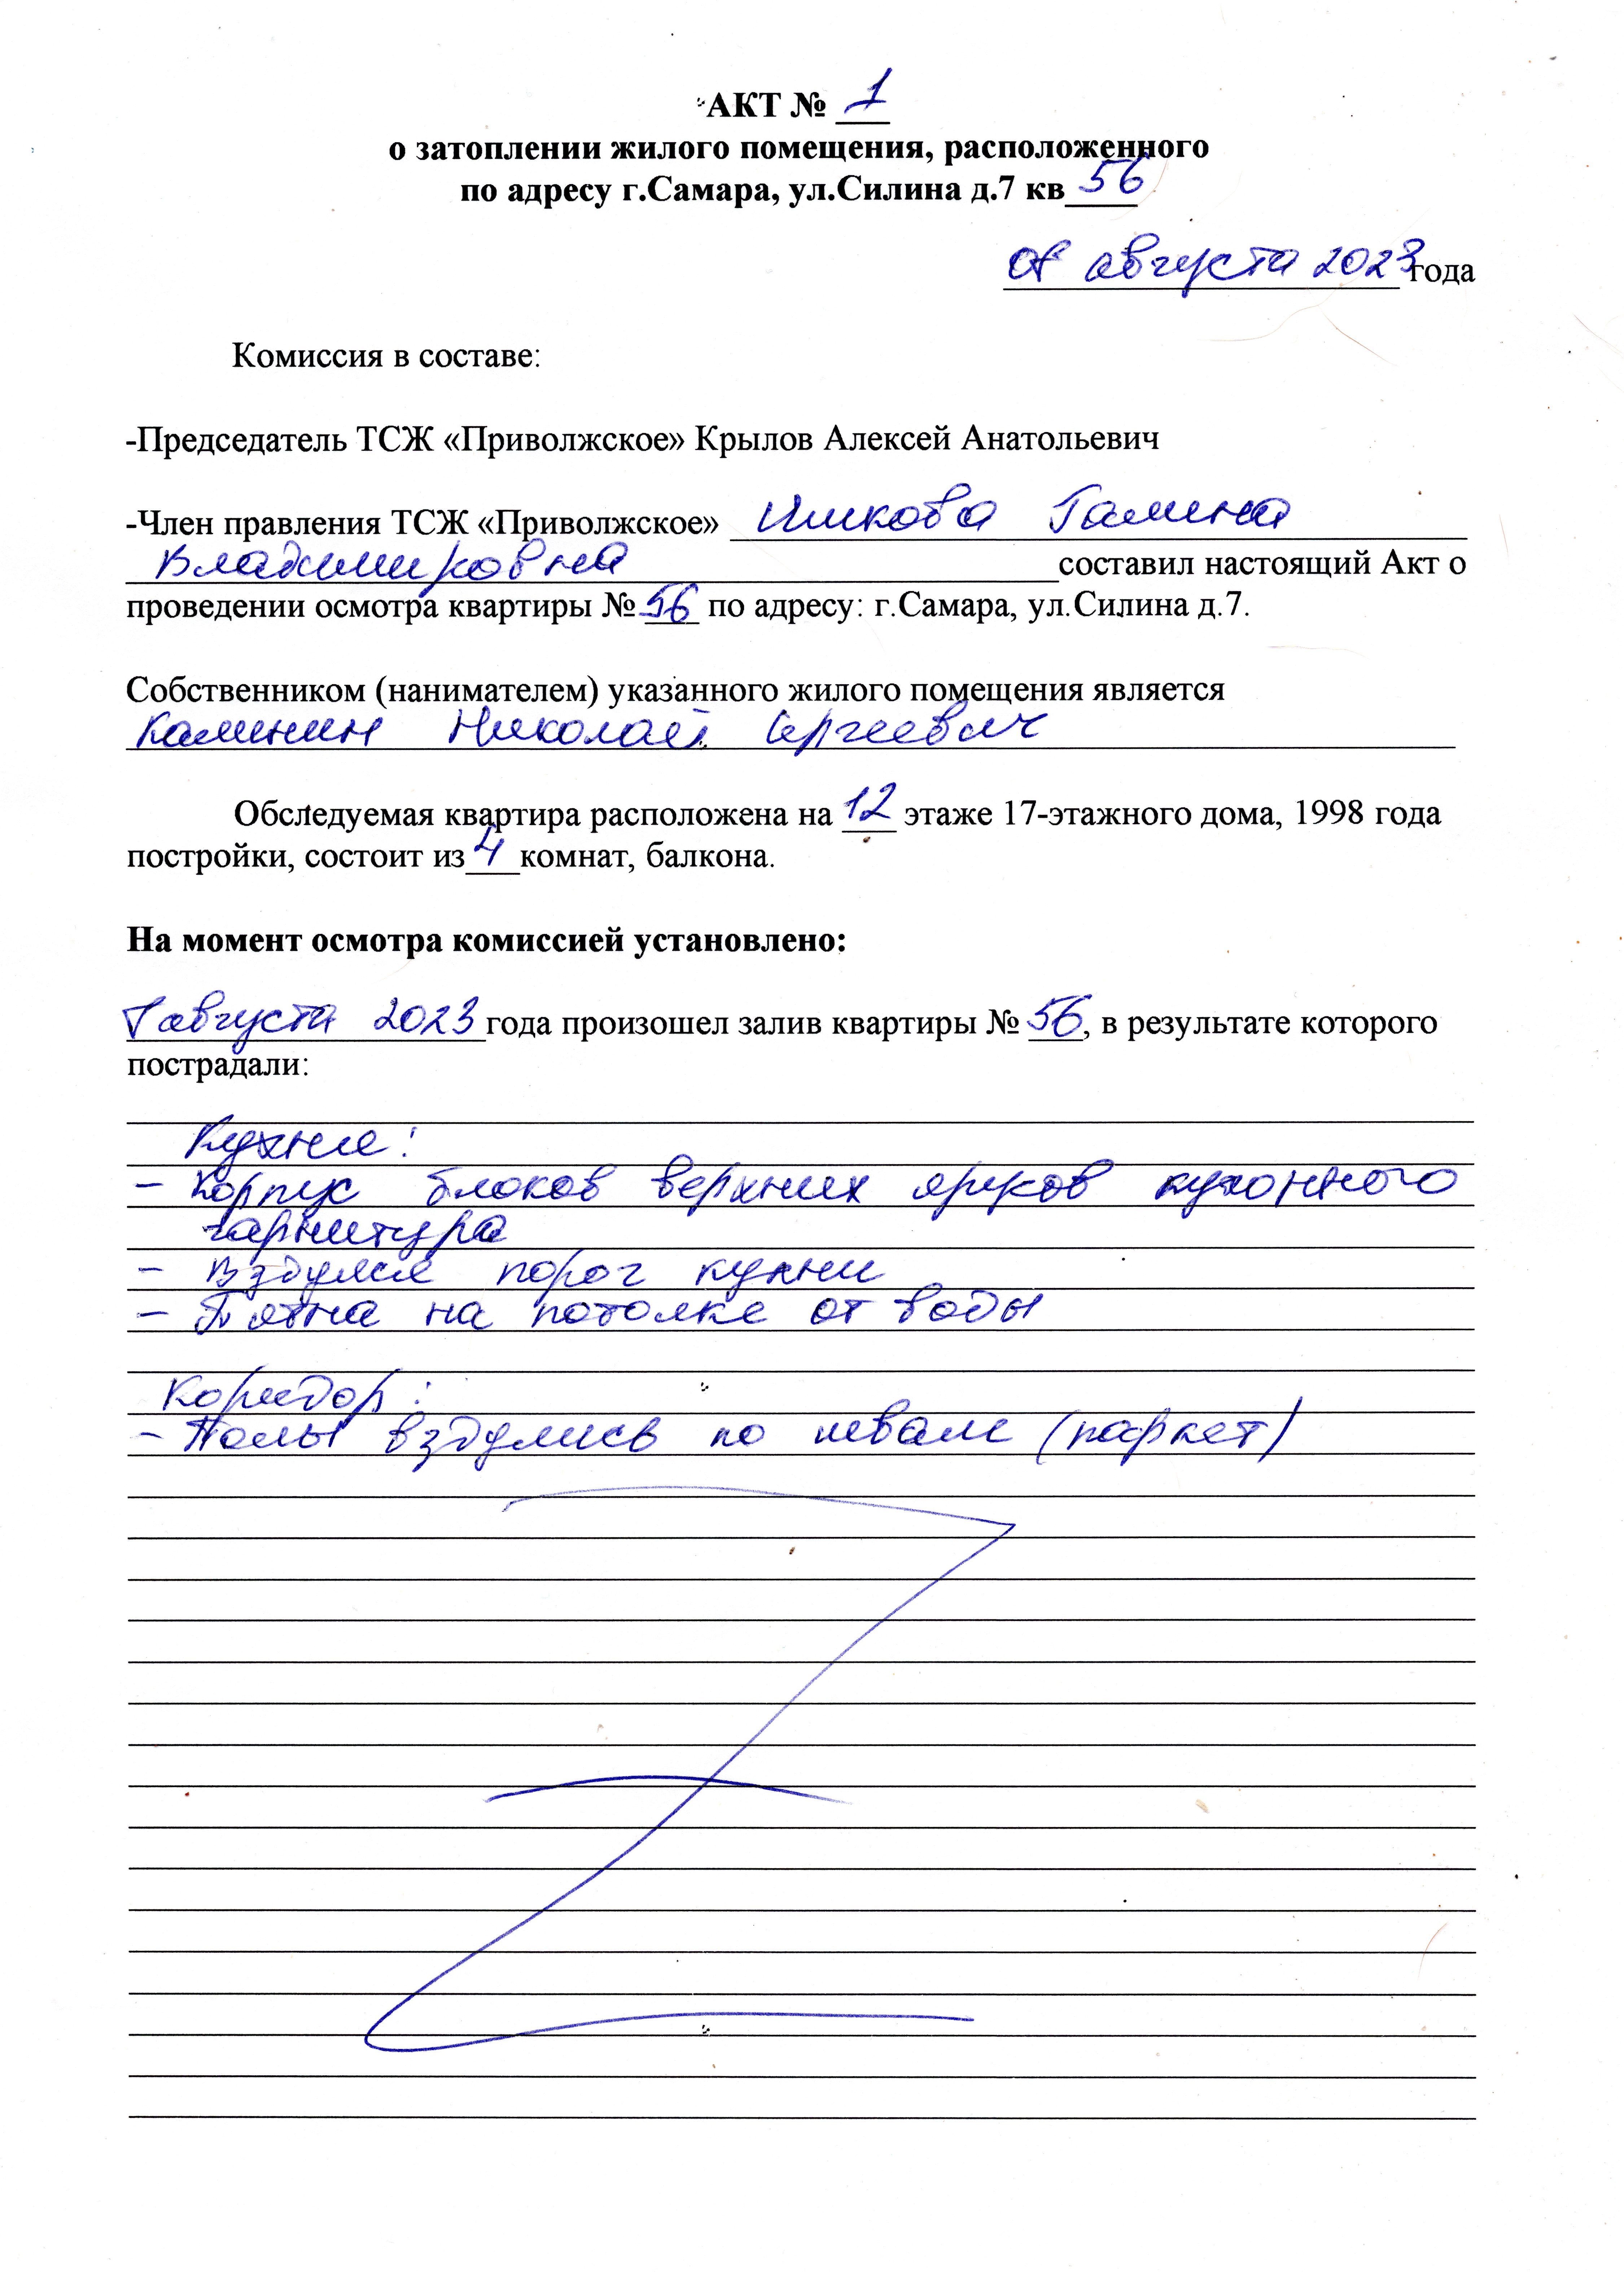 АКТ № 1
о затоплении жилого помещения, расположенного
по адресу г.Самара, ул.Силина д.7 кв 56
августа 2023 года
Комиссия в составе:
-Председатель ТСЖ «Приволжское» Крылов Алексей Анатольевич
-Член правления ТСЖ «Приволжское» Галина
Владимировна составил настоящий Акт о
проведении осмотра квартиры № 56 по адресу: г.Самара, ул.Силина д.7.
Собственником (нанимателем) указанного жилого помещения является
Калинин Николай Сергеевич
Обследуемая квартира расположена на 12 этаже 17-этажного дома, 1998 года
постройки, состоит из 4 комнат, балкона.
На момент осмотра комиссией установлено:
августа 2023 года произошел залив квартиры № 56, в результате которого
пострадали:
Кухне:
- Корпус блоков верхних ярусов кухонного
гарнитура
- Вздулся порог кухни
- Пятна на потолке от воды
Коридор:
- Полы вздулись по швам (паркет)